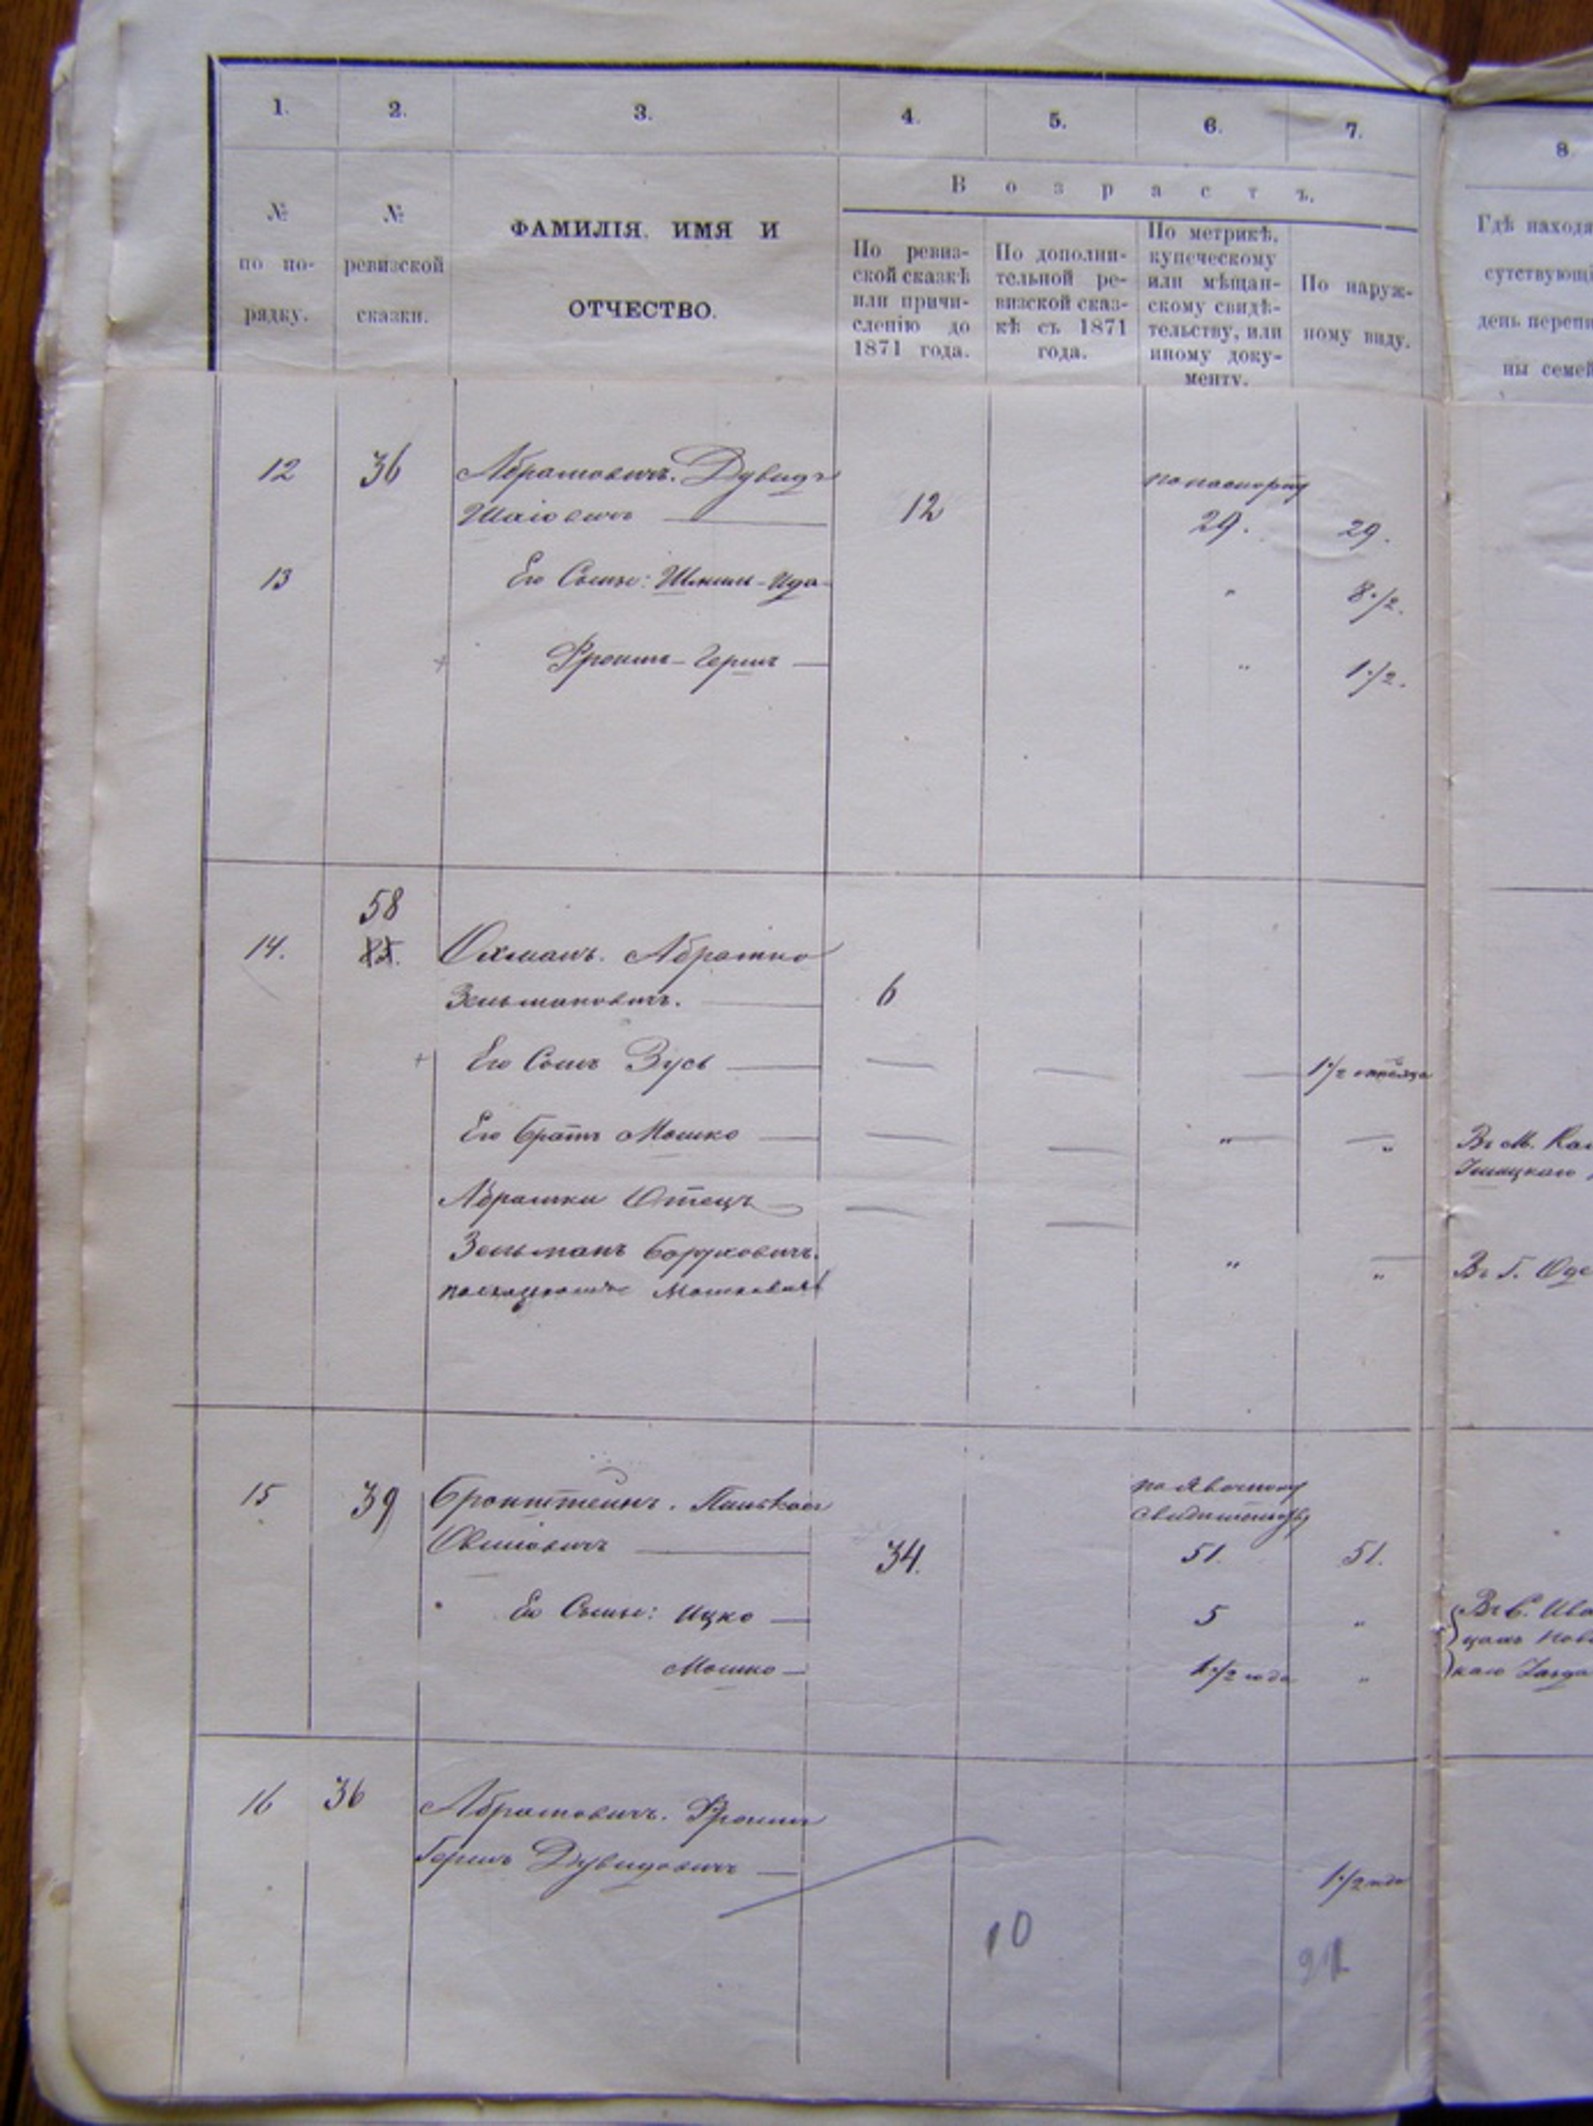 1. 2. 3. 4. 5. 6. 7. 8
№ по по-рядку.
№ ревизской сказки.
ФАМИЛІЯ, ИМЯ И
ОТЧЕСТВО.
Возрастъ.
По ревиз-
ской сказкѣ
или причи-
сленію до
1871 года.
По дополни-
тельной ре-
визской сказ-
кѣ съ 1871
года.
По метрикѣ,
купеческому
или мѣщан-
скому свидѣ-
тельству, или
иному доку-
менту.
По наруж-
ному виду.
Гдѣ находя
сутствующі
день перепи
ны семей
12 36 Абрамовичъ. Дувидъ по паспорту
Шаіовичъ 12 29. 29.
13 Его Сынъ: Ида " 8 1/2.
Фроимъ-Гершъ " 1 1/2.
58
14. Охманъ. Абрамко
Зельмановичъ. 6
Его Сынъ Зусь 1 1/2
Его братъ Мошко " " Въ М.
Абрамки Отецъ
Зельманъ Боруховичъ. " " Въ Г. Оде
Мошковичъ
15 39 Бронштейнъ. по явочному
свидѣтельству
Овшіовичъ 34. 51. 51.
Его Сыны: Ицко 5 " Въ С. Ива
Мошко 1 1/2 года "
16 36 Абрамовичъ. Фроимъ
Гершъ Дувидовичъ 1 1/2 года
10